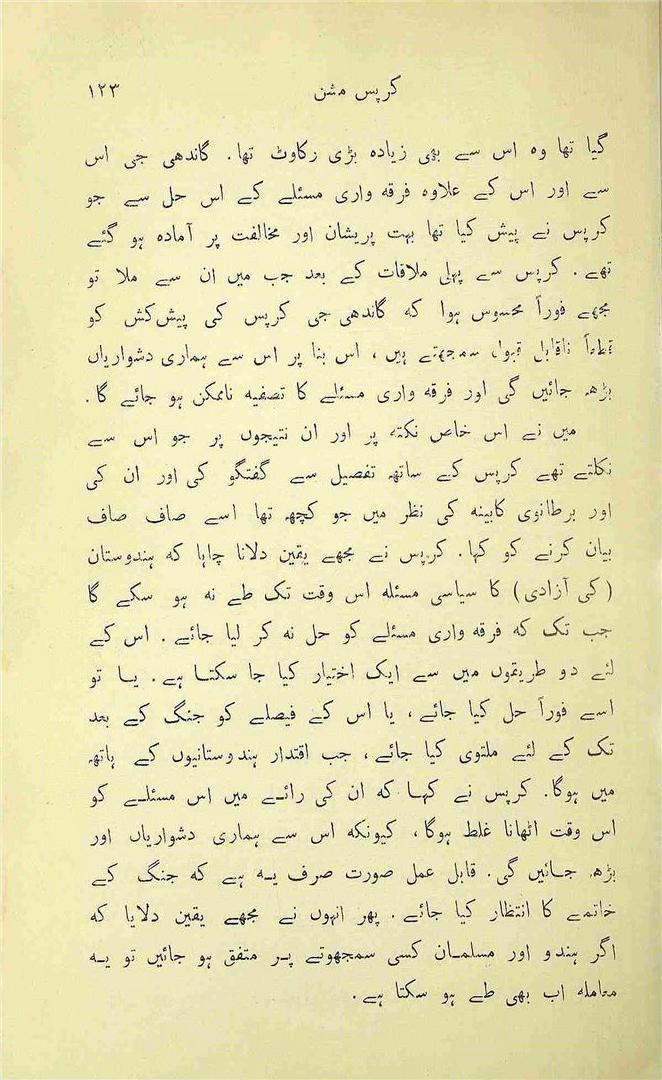 کرپس مشن ۱۲۳
گیا تھا وہ اس سے بھی زیادہ بڑی رکاوٹ تھا۔ گاندھی جی اس
سے اور اس کے علاوہ فرقہ واری مسئلے کے اس حل سے جو
کرپس نے پیش کیا تھا بہت پریشان اور مخالفت پر آمادہ ہو گئے
تھے۔ کرپس سے پہلی ملاقات کے بعد جب میں ان سے ملا تو
مجھے فوراً محسوس ہوا کہ گاندھی جی کرپس کی پیش کش کو
قطعاً ناقابل قبول سمجھتے ہیں، اس بنا پر اس سے ہماری دشواریاں
بڑھ جائیں گی اور فرقہ واری مسئلے کا تصفیہ ناممکن ہو جائے گا۔
میں نے اس خاص نکتہ پر اور ان نتیجوں پر جو اس سے
نکلتے تھے کرپس کے ساتھ تفصیل سے گفتگو کی اور ان کی
اور برطانوی کابینہ کی نظر میں جو کچھ تھا اسے صاف صاف
بیان کرنے کو کہا۔ کرپس نے مجھے یقین دلانا چاہا کہ ہندوستان
(کی آزادی) کا سیاسی مسئلہ اس وقت تک طے نہ ہو سکے گا
جب تک کہ فرقہ واری مسئلے کو حل نہ کر لیا جائے۔ اس کے
لئے دو طریقوں میں سے ایک اختیار کیا جا سکتا ہے۔ یا تو
اسے فوراً حل کیا جائے، یا اس کے فیصلے کو جنگ کے بعد
تک کے لئے ملتوی کیا جائے، جب اقتدار ہندوستانیوں کے ہاتھ
میں ہوگا۔ کرپس نے کہا کہ ان کی رائے میں اس مسئلے کو
اس وقت اٹھانا غلط ہوگا، کیونکہ اس سے ہماری دشواریاں اور
بڑھ جائیں گی۔ قابل عمل صورت صرف یہ ہے کہ جنگ کے
خاتمے کا انتظار کیا جائے۔ پھر انہوں نے مجھے یقین دلایا کہ
اگر ہندو اور مسلمان کسی سمجھوتے پر متفق ہو جائیں تو یہ
معاملہ اب بھی طے ہو سکتا ہے۔